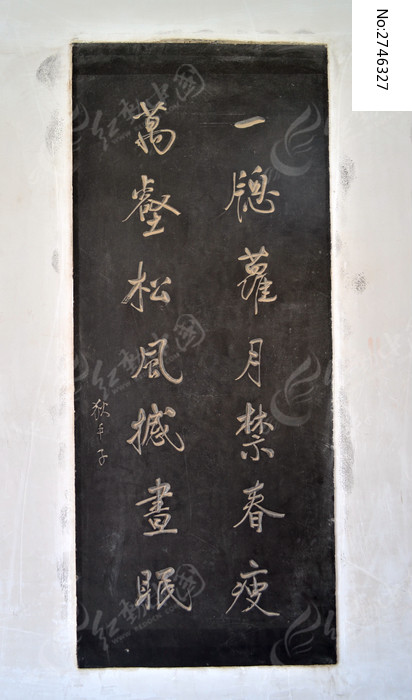 一牎蘿月禁春瘦
萬壑松風撼晝眠
狄平子
No:2746327